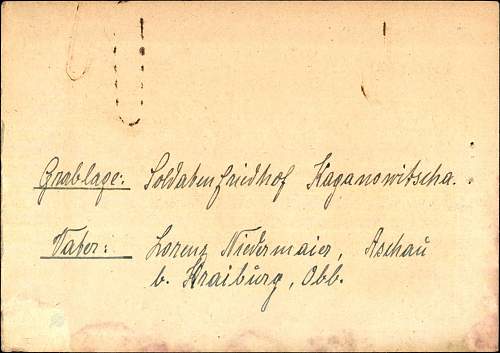 Grablage: Soldatenfriedhof Kaganowitscha.
Vater: Lorenz Niedermaier, Aschau
b. Kraiburg, Obb.